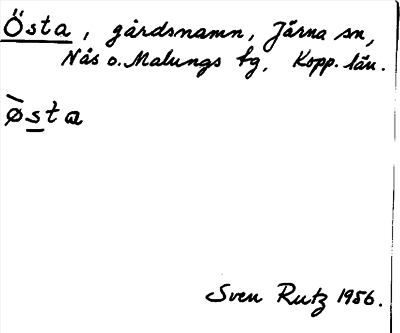 Östa, gårdsnamn, Järna sn,
Nås o. Malungs tg, Kopp. län.
ø̀s̠ta
Sven Rutz 1956.